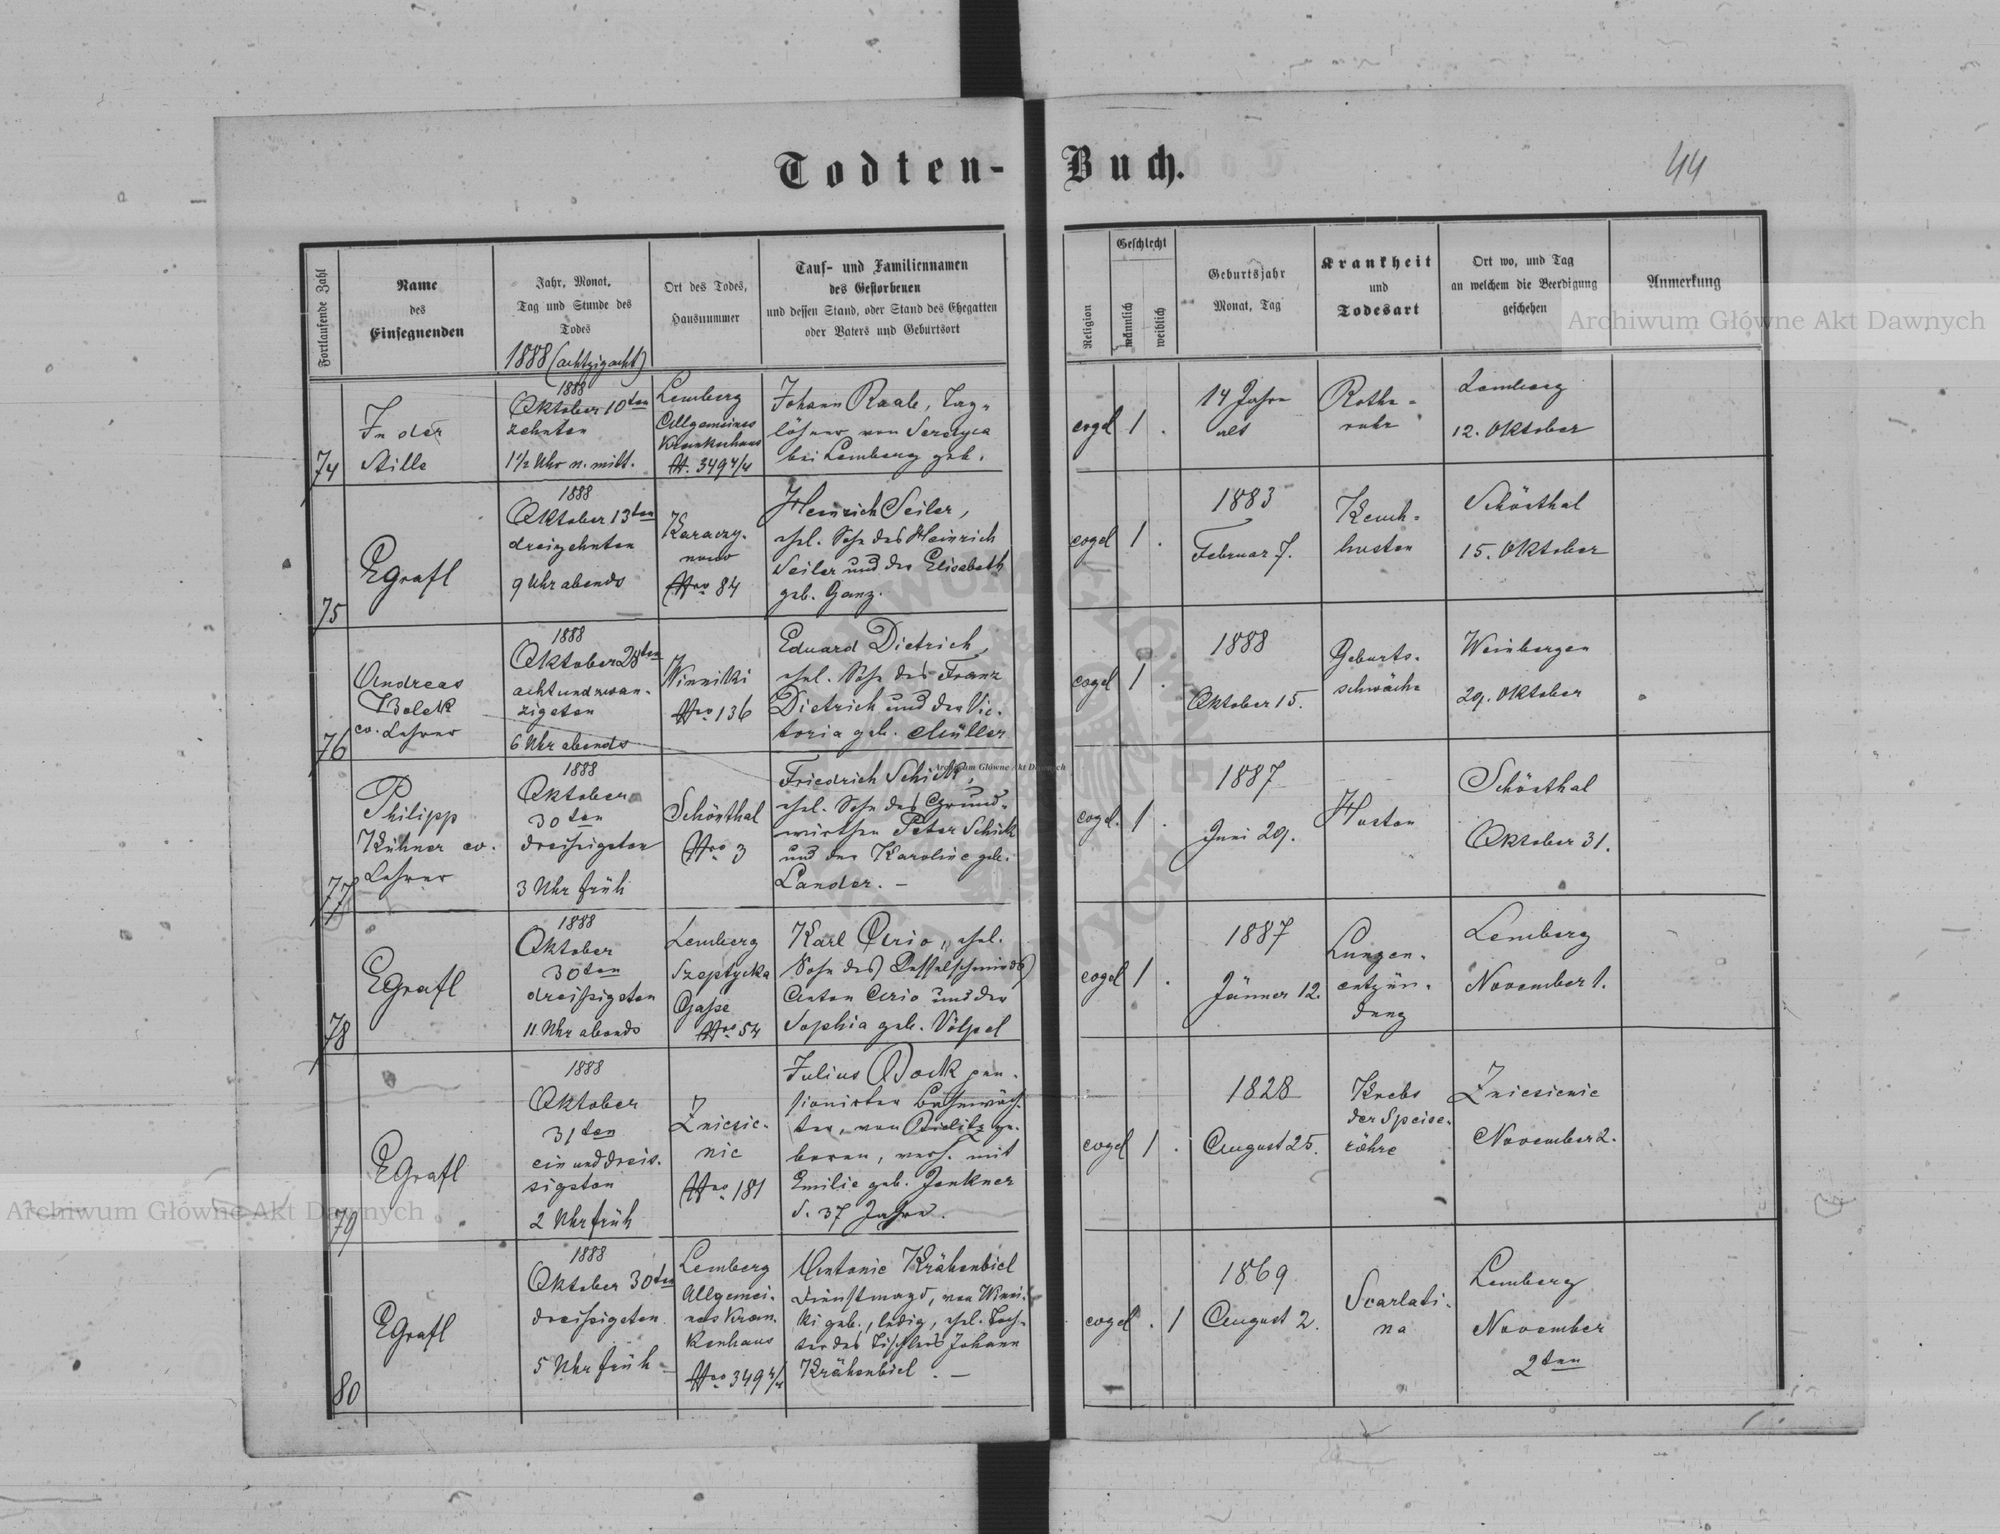 Todten-Buch.
44
Fortlaufende Zahl
Name
des
Einsegnenden
Jahr, Monat,
Tag und Stunde des
Todes
1888 (achtzigacht)
Ort des Todes,
Hausnummer
Tauf- und Familiennamen
des Gestorbenen
und dessen Stand, oder Stand des Ehegatten
oder Vaters und Geburtsort
Religion
Geschlecht
männlich
weiblich
Geburtsjahr
Monat, Tag
Krankheit
und
Todesart
Ort wo, und Tag
an welchem die Beerdigung
geschehen
Anmerkung
Archiwum Główne Akt Dawnych
74
In der
Stille
1888
Oktober 10ten
zehnten
1½ Uhr n. mitt.
Lemberg
Allgemeines
Krankenhaus
N. 349 4/4
Johann Raab, Tag-
löhner von
bei Lemberg geb.
evgel
1 .
14 Jahre
alt
Rothe-
ruhr
Lemberg
12. Oktober
75
EGrafl
1888
Oktober 13ten
dreizehnten
9 Uhr abends
Karaczy-
now
Nro 84
Heinrich Seiler,
ehel. Sohn des Heinrich
Seiler und der Elisabeth
geb. Ganz.
evgel
1 .
1883
Februar 7.
Keuch-
husten
Schönthal
15. Oktober
76
Andreas
Bolek
ev. Lehrer
1888
Oktober 28ten
achtundzwan-
zigsten
6 Uhr abends
Winniki
Nro 136
Eduard Dietrich,
ehel. Sohn des Franz
Dietrich und der Vic-
toria geb. Müller
evgel
1 .
1888
Oktober 15.
Geburts-
schwäche
Weinbergen
29. Oktober
77
Philipp
Kühner ev.
Lehrer
1888
Oktober
30ten
dreißigsten
3 Uhr früh
Schönthal
Nro 3
Friedrich Schick,
ehel. Sohn des Grund-
wirthen Peter Schick
und der Karoline geb.
Lander. —
Archiwum Główne Akt Dawnych
evgel.
1 .
1887
Juni 29.
Husten
Schönthal
Oktober 31.
78
EGrafl
1888
Oktober
30ten
dreißigsten
11 Uhr abends
Lemberg
Szeptycka
Gaße
Nro 54
Karl Ario, ehel.
Sohn des Kesselschmieds
Anton Ario und der
Sophia geb. Völpel
evgel
1 .
1887
Jänner 12.
Lungen-
entzün-
dung
Lemberg
November 1.
79
EGrafl
1888
Oktober
31ten
ein und dreis-
sigsten
2 Uhr früh
Zniesie-
nie
Nro 181
Julius Bock pen-
sionirter Bahnwäch-
ter, von Bielitz ge-
boren, verh. mit
Emilie geb. Jenkner
s. 37 Jahren.
evgel
1 .
1828
August 25.
Krebs
der Speise-
röhre
Zniesienie
November 2.
Archiwum Główne Akt Dawnych
80
EGrafl
1888
Oktober 30ten
dreißigsten
5 Uhr früh
Lemberg
Allgemei-
nes Kran-
kenhaus
Nro 349 4/4
Antonie Krähenbiel
Dienstmagd, von Winni-
ki geb., ledig, ehel. Toch-
ter des Tischlers Johann
Krähenbiel. —
evgel
. 1
1869
August 2.
Scarlati-
na
Lemberg
November
2ten